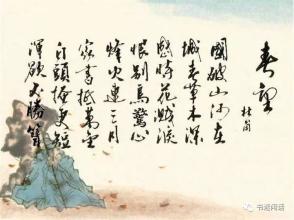 春望
杜甫
國破山河在
城春草木深
感時花濺淚
恨别鳥驚心
烽火連三月
家書抵萬金
白頭搔更短
渾欲不勝簪
书通阅话